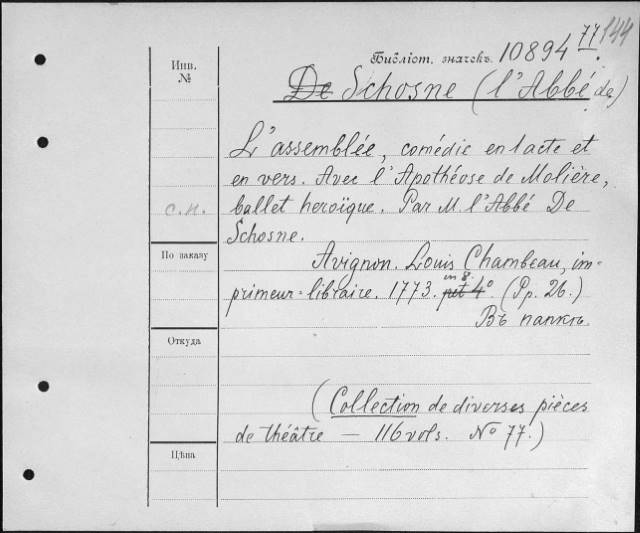 144
Инв. №
Библіот. значекъ. 10894 77.
De Schosne (l'Abbé de)
L'assemblée, comédie en 1 acte et
en vers. Avec l'Apothéose de Molière,
с.н. ballet heroïque. Par M. l'Abbé De
Schosne.
По заказу
Avignon. Louis Chambeau, im-
in 8.
primeur-libraire. 1773. pet 4° (Pp. 26.)
Въ папкѣ.
Откуда
(Collection de diverses pièces
de théâtre — 116 vols. No 77.)
Цѣна